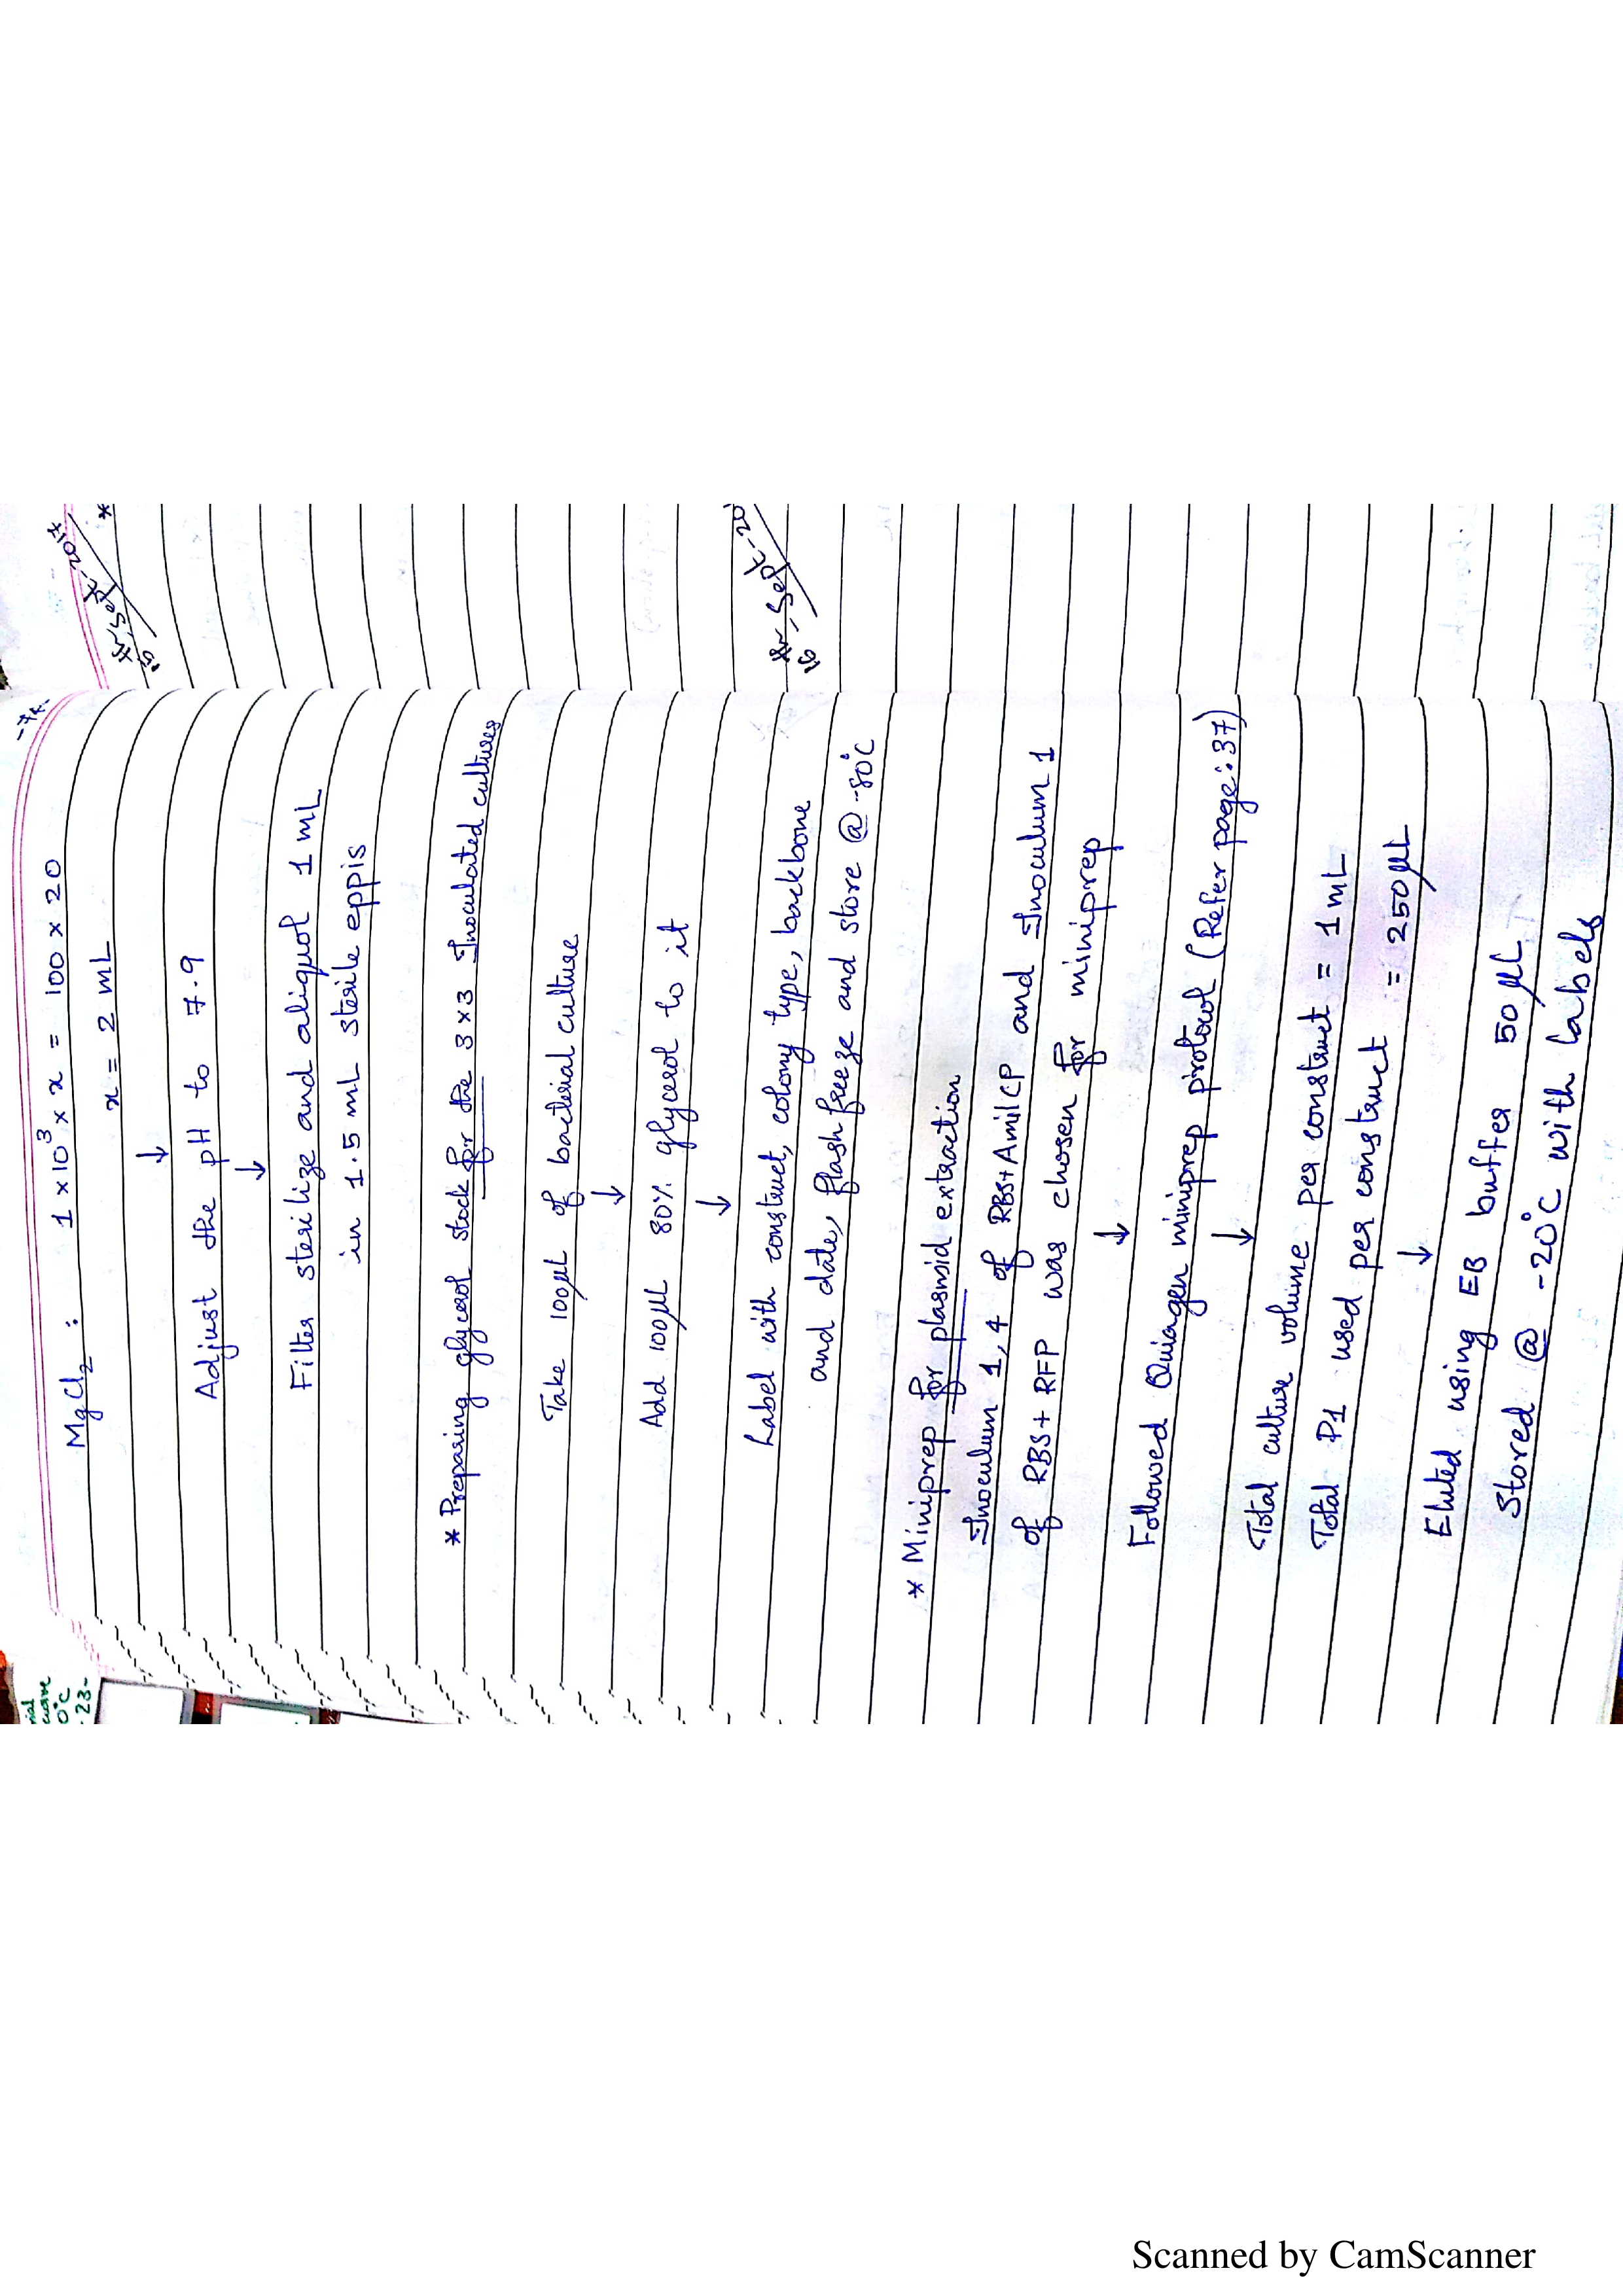 MgCl2 : 1 x 10³ x x = 100 x 20
x = 2 mL
↓
Adjust the pH to 7.9
↓
Filter sterilize and aliquot 1 mL
in 1.5 mL sterile eppis
* Preparing glycerol stock for the 3x3 Inoculated cultures
Take 100μL of bacterial culture
↓
Add 100μL 80% glycerol to it
↓
Label with construct, colony type, backbone
and date, flash freeze and store @ -80°C
* Miniprep for plasmid extraction
Inoculum 1,4 of RBS+AmilCP and Inoculum 1
of RBS+ RFP was chosen for miniprep
↓
Followed Quiagen miniprep protocol (Refer page: 37)
↓
Total culture volume per construct = 1 mL
Total P1 used per construct = 250μL
↓
Eluted using EB buffer 50 μL
Stored @ -20°C with labels
Scanned by CamScanner